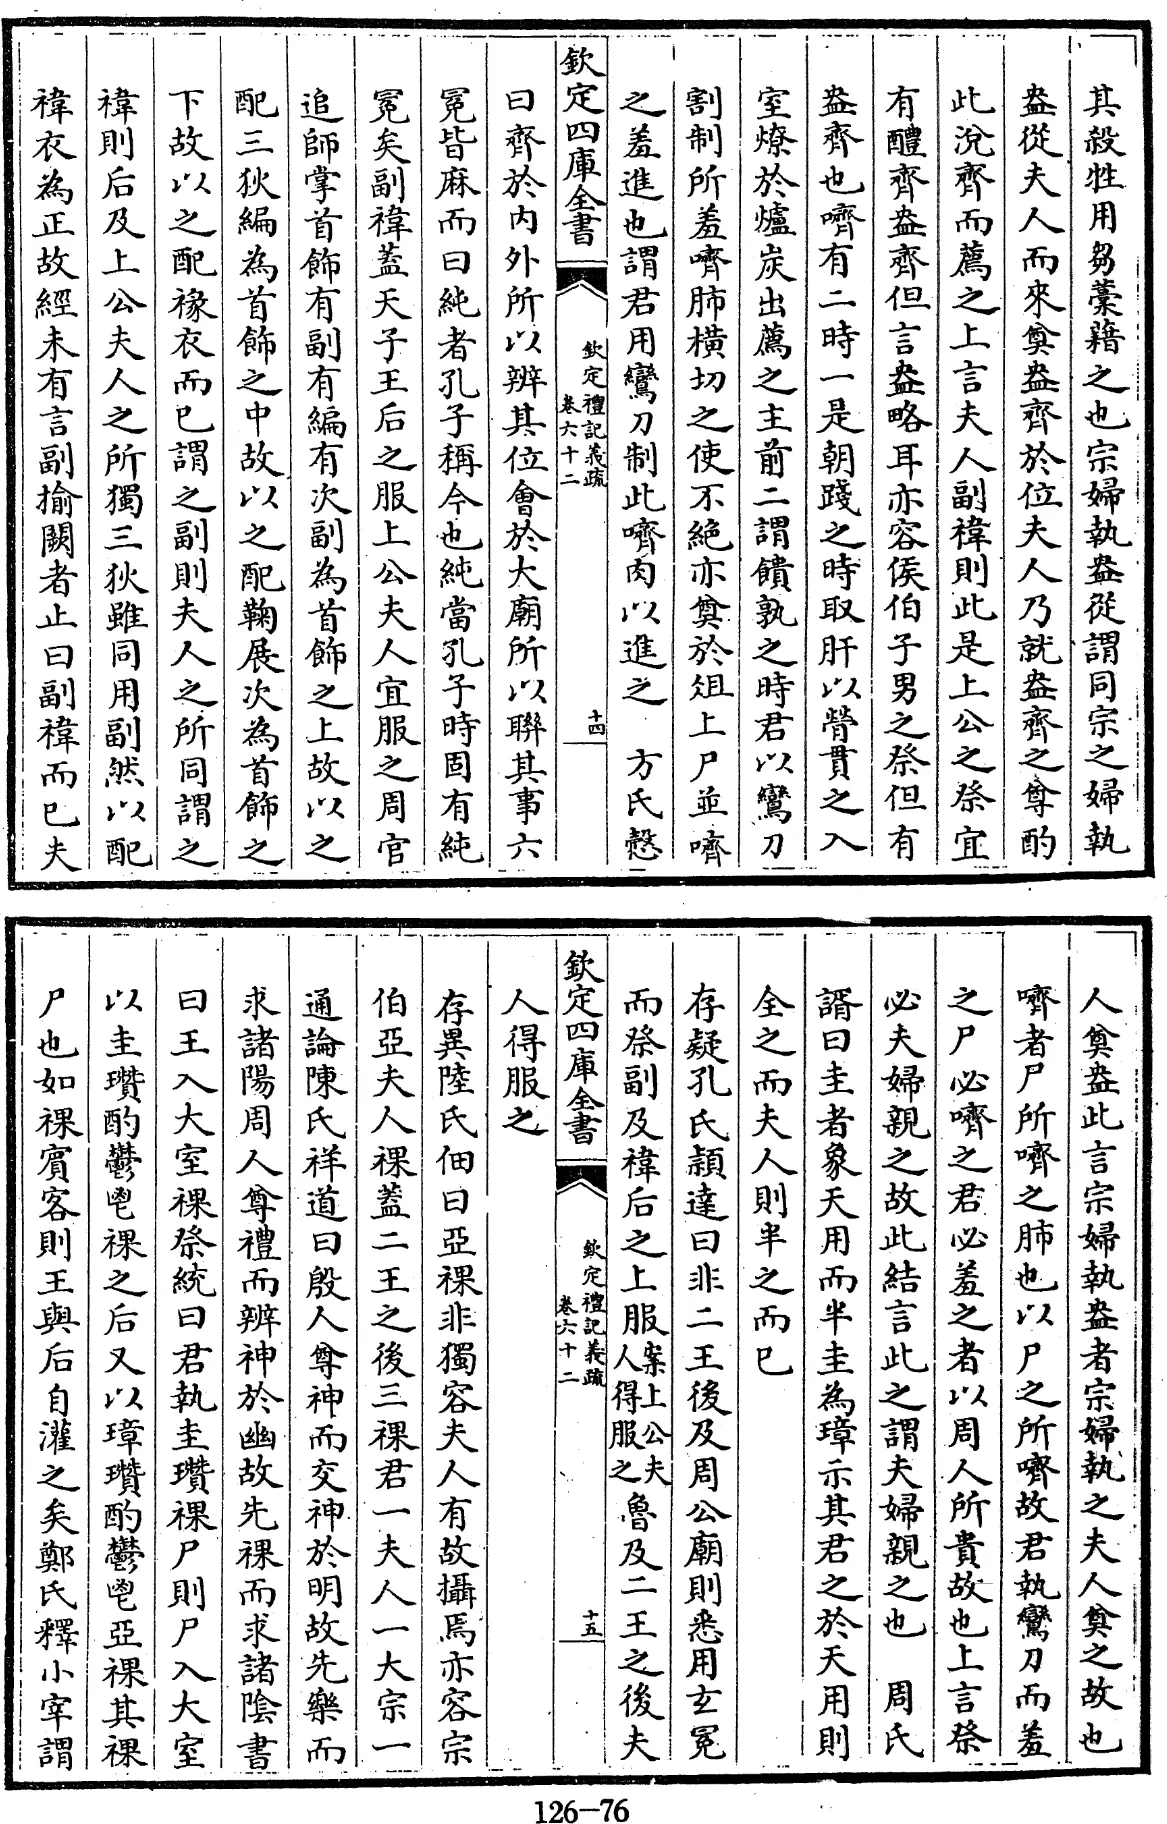 其殺牲用芻藁藉之也宗婦執盎從謂同宗之婦執
盎從夫人而來奠盎齊於位夫人乃就盎齊之尊酌
此涚齊而薦之上言夫人副褘則此是上公之祭宜
有醴齊盎齊但言盎略耳亦容侯伯子男之祭但有
盎齊也嚌有二時一是朝踐之時取肝以膋貫之入
室燎於爐炭出薦之主前二謂饋孰之時君以鸞刀
割制所羞嚌肺橫切之使不絶亦奠於俎上尸並嚌
之羞進也謂君用鸞刀制此嚌肉以進之 方氏慤
欽定四庫全書
欽定禮記義疏
卷六十二
十四
曰齊於内外所以辨其位會於大廟所以聯其事六
冕皆麻而曰純者孔子稱今也純當孔子時固有純
冕矣副褘蓋天子王后之服上公夫人宜服之周官
追師掌首飾有副有編有次副為首飾之上故以之
配三狄編為首飾之中故以之配鞠展次為首飾之
下故以之配褖衣而已謂之副則夫人之所同謂之
褘則后及上公夫人之所獨三狄雖同用副然以配
褘衣為正故經未有言副揄闕者止曰副褘而已夫
人奠盎此言宗婦執盎者宗婦執之夫人奠之故也
嚌者尸所嚌之肺也以尸之所嚌故君執鸞刀而羞
之尸必嚌之君必羞之者以周人所貴故也上言祭
必夫婦親之故此結言此之謂夫婦親之也 周氏
諝曰圭者象天用而半圭為璋示其君之於天用則
全之而夫人則半之而已
存疑孔氏穎達曰非二王後及周公廟則悉用玄冕
而祭副及褘后之上服案上公夫人得服之魯及二王之後夫
欽定四庫全書
欽定禮記義疏
卷六十二
十五
人得服之
存異陸氏佃曰亞祼非獨容夫人有故攝焉亦容宗
伯亞夫人祼蓋二王之後三祼君一夫人一大宗一
通論陳氏祥道曰殷人尊神而交神於明故先樂而
求諸陽周人尊禮而辨神於幽故先祼而求諸陰書
曰王入大室祼祭統曰君執圭瓚祼尸則尸入大室
以圭瓚酌鬱鬯祼之后又以璋瓚酌鬱鬯亞祼其祼
尸也如祼賓客則王與后自灌之矣鄭氏釋小宰謂
126-76